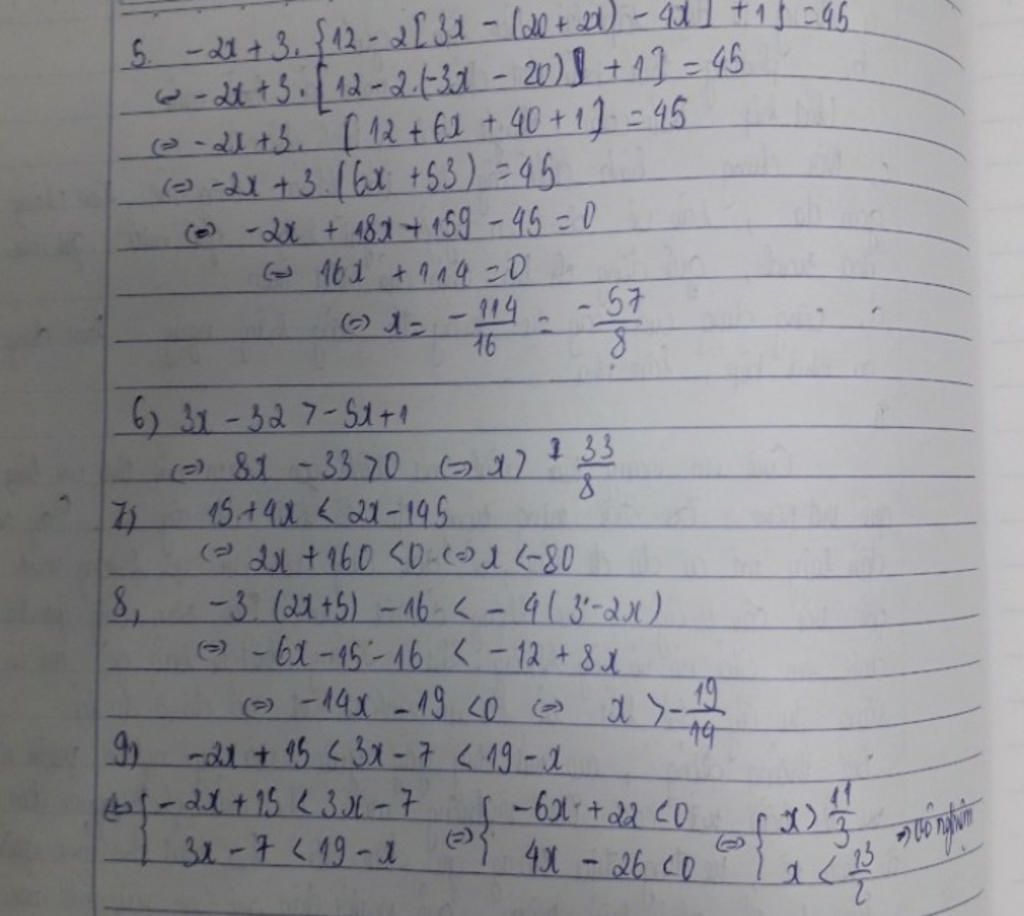 5. -2x + 3. {12 - 2[3x - (20 + 2x) - 4x] + 1} = 45
⇔ -2x + 3. [12 - 2.(-3x - 20)] + 1] = 45
⇔ -2x + 3. [12 + 6x + 40 + 1] = 45
⇔ -2x + 3.(6x + 53) = 45
⇔ -2x + 18x + 159 - 45 = 0
⇔ 16x + 114 = 0
⇔ x = -114/16 = -57/8
6) 3x - 32 > -5x + 1
⇔ 8x - 33 > 0 ⇔ x > 33/8
7) 15 + 4x < 2x - 145
⇔ 2x + 160 < 0 ⇔ x < -80
8, -3 (2x + 5) - 16 < -4(3 - 2x)
⇔ -6x - 15 - 16 < -12 + 8x
⇔ -14x - 19 < 0 ⇔ x > -19/14
9) -2x + 15 < 3x - 7 < 19 - x
⇔ { -2x + 15 < 3x - 7 ⇔ { -6x + 22 < 0 ⇔ { x > 11/3 ⇒ Vô nghiệm
3x - 7 < 19 - x 4x - 26 < 0 x < 13/2